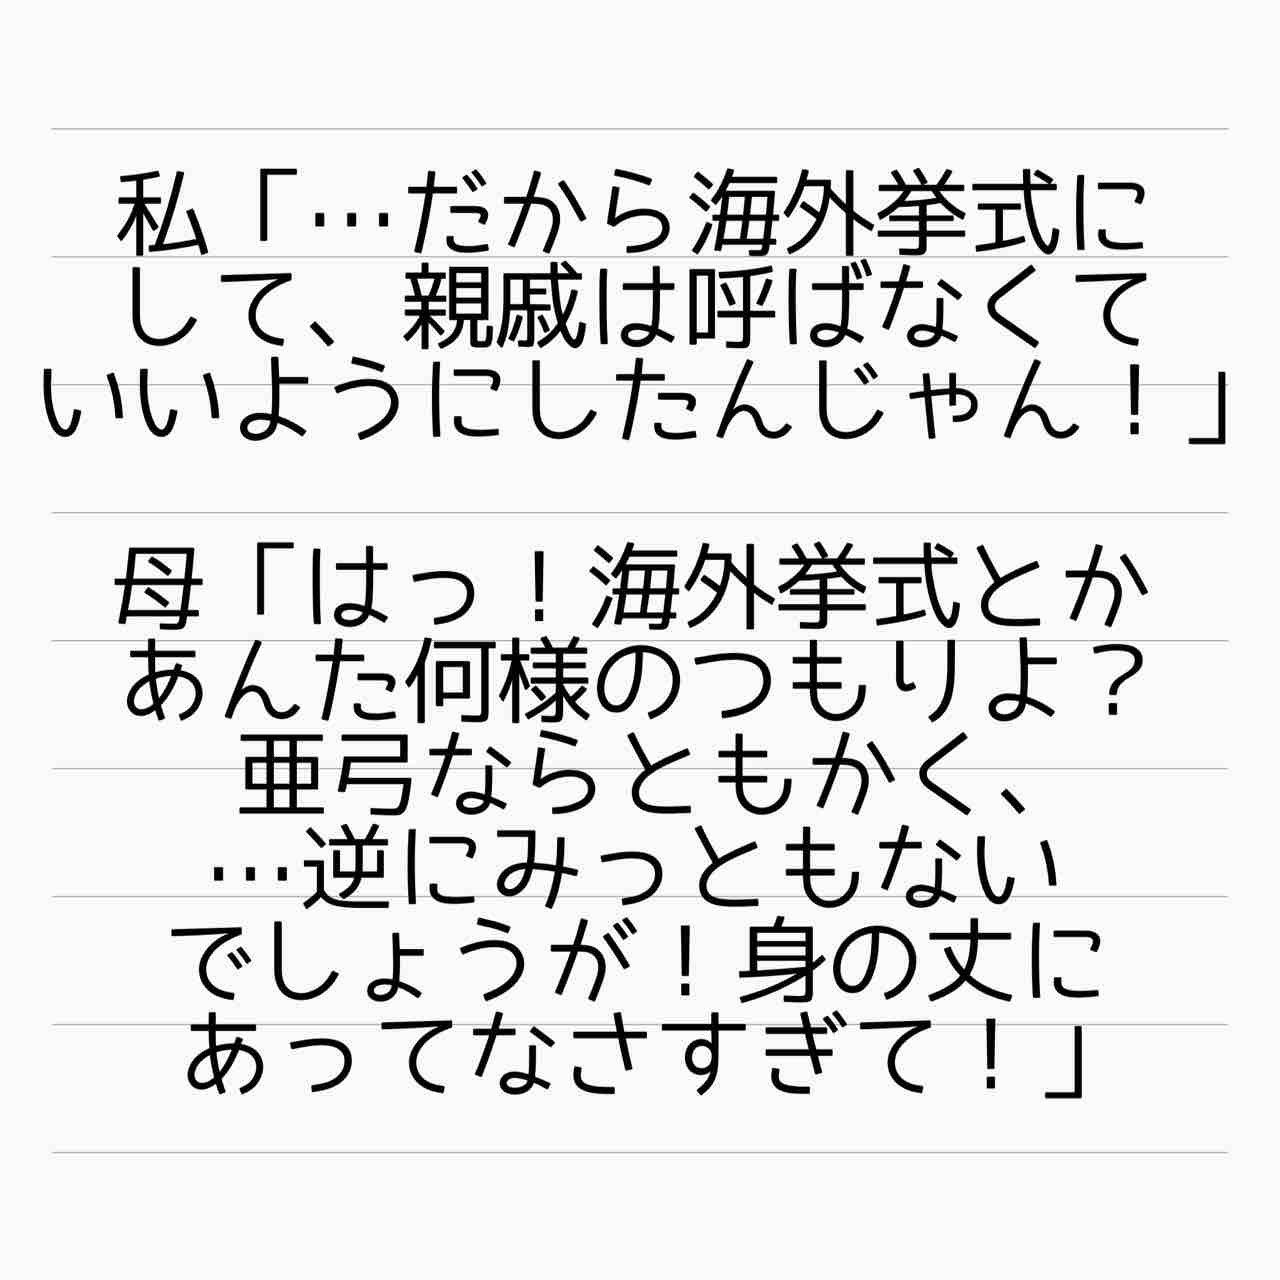 私「…だから海外挙式に
して、親戚は呼ばなくて
いいようにしたんじゃん！」
母「はっ！海外挙式とか
あんた何様のつもりよ？
亜弓ならともかく、
…逆にみっともない
でしょうが！身の丈に
あってなさすぎて！」